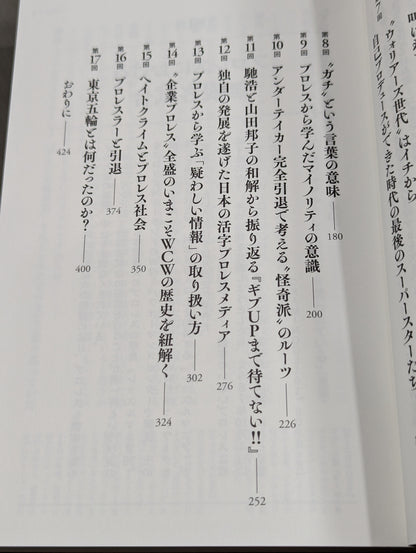 “ウォリアーズ世代”はイチから
自己プロデュースができた時代の最後のスーパースターたち
第8回 “ガチ”という言葉の意味 ── 180
第9回 プロレスから学んだマイノリティの意識 ── 200
第10回 アンダーテイカー完全引退で考える“怪奇派”のルーツ ── 226
第11回 馳浩と山田邦子の和解から振り返る『ギブUPまで待てない!!』 ── 252
第12回 独自の発展を遂げた日本の活字プロレスメディア ── 276
第13回 プロレスから学ぶ「疑わしい情報」の取り扱い方 ── 302
第14回 “企業プロレス”全盛のいまこそWCWの歴史を紐解く ── 324
第15回 ヘイトクライムとプロレス社会 ── 350
第16回 プロレスラーと引退 ── 374
第17回 東京五輪とは何だったのか? ── 400
おわりに ── 424